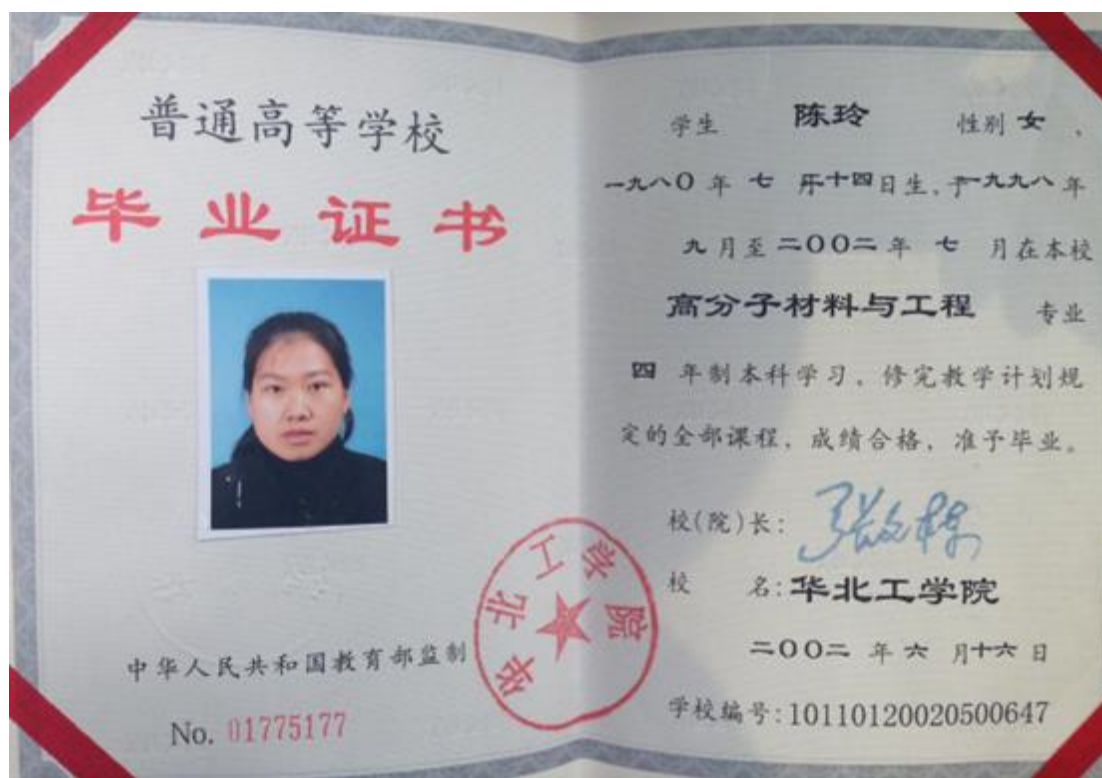 普通高等学校
毕业证书
中华人民共和国教育部监制
No. 01775177
华北工学院
学生 陈玲 性别 女、
一九八〇 年 七 月十四日生,于一九九八 年
九 月至 二〇〇二 年 七 月在本校
高分子材料与工程 专业
四 年制本科学习,修完教学计划规
定的全部课程,成绩合格,准予毕业。
校(院)长:
校 名:华北工学院
二〇〇二 年 六 月十六 日
学校编号:10110120020500647